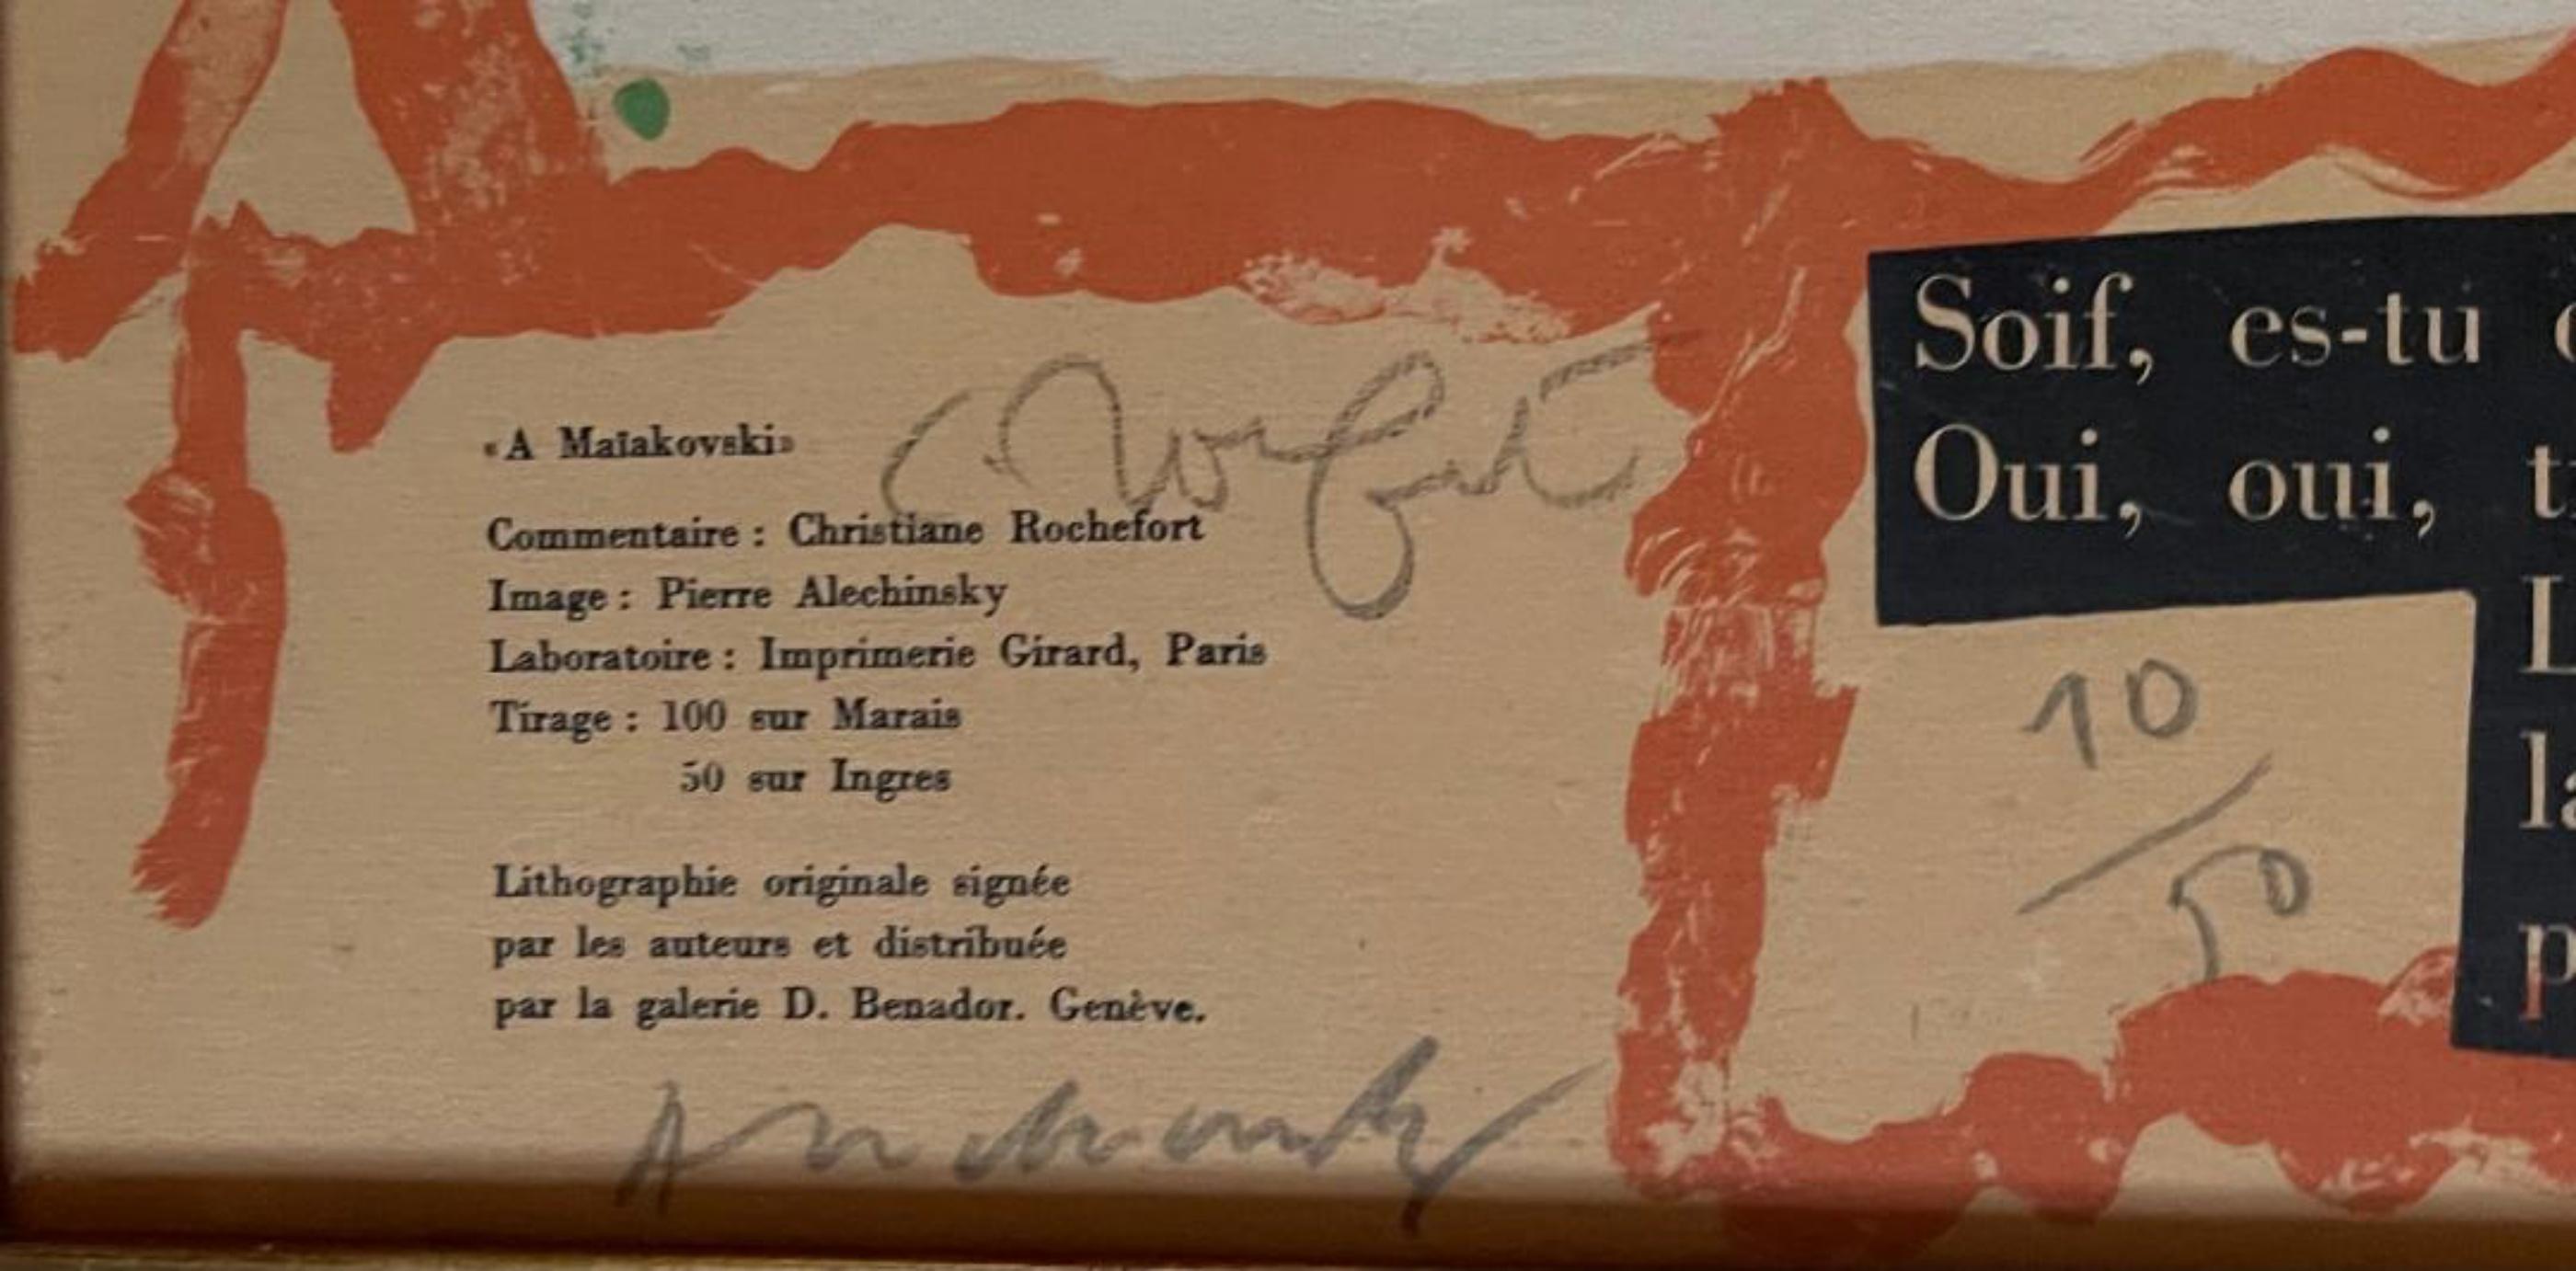 «A Maïakovski»
Commentaire : Christiane Rochefort
Image : Pierre Alechinsky
Laboratoire : Imprimerie Girard, Paris
Tirage : 100 sur Marais
50 sur Ingres
Lithographie originale signée
par les auteurs et distribuée
par la galerie D. Benador. Genève.
Soif, es-tu
Oui, oui,
10
/
50